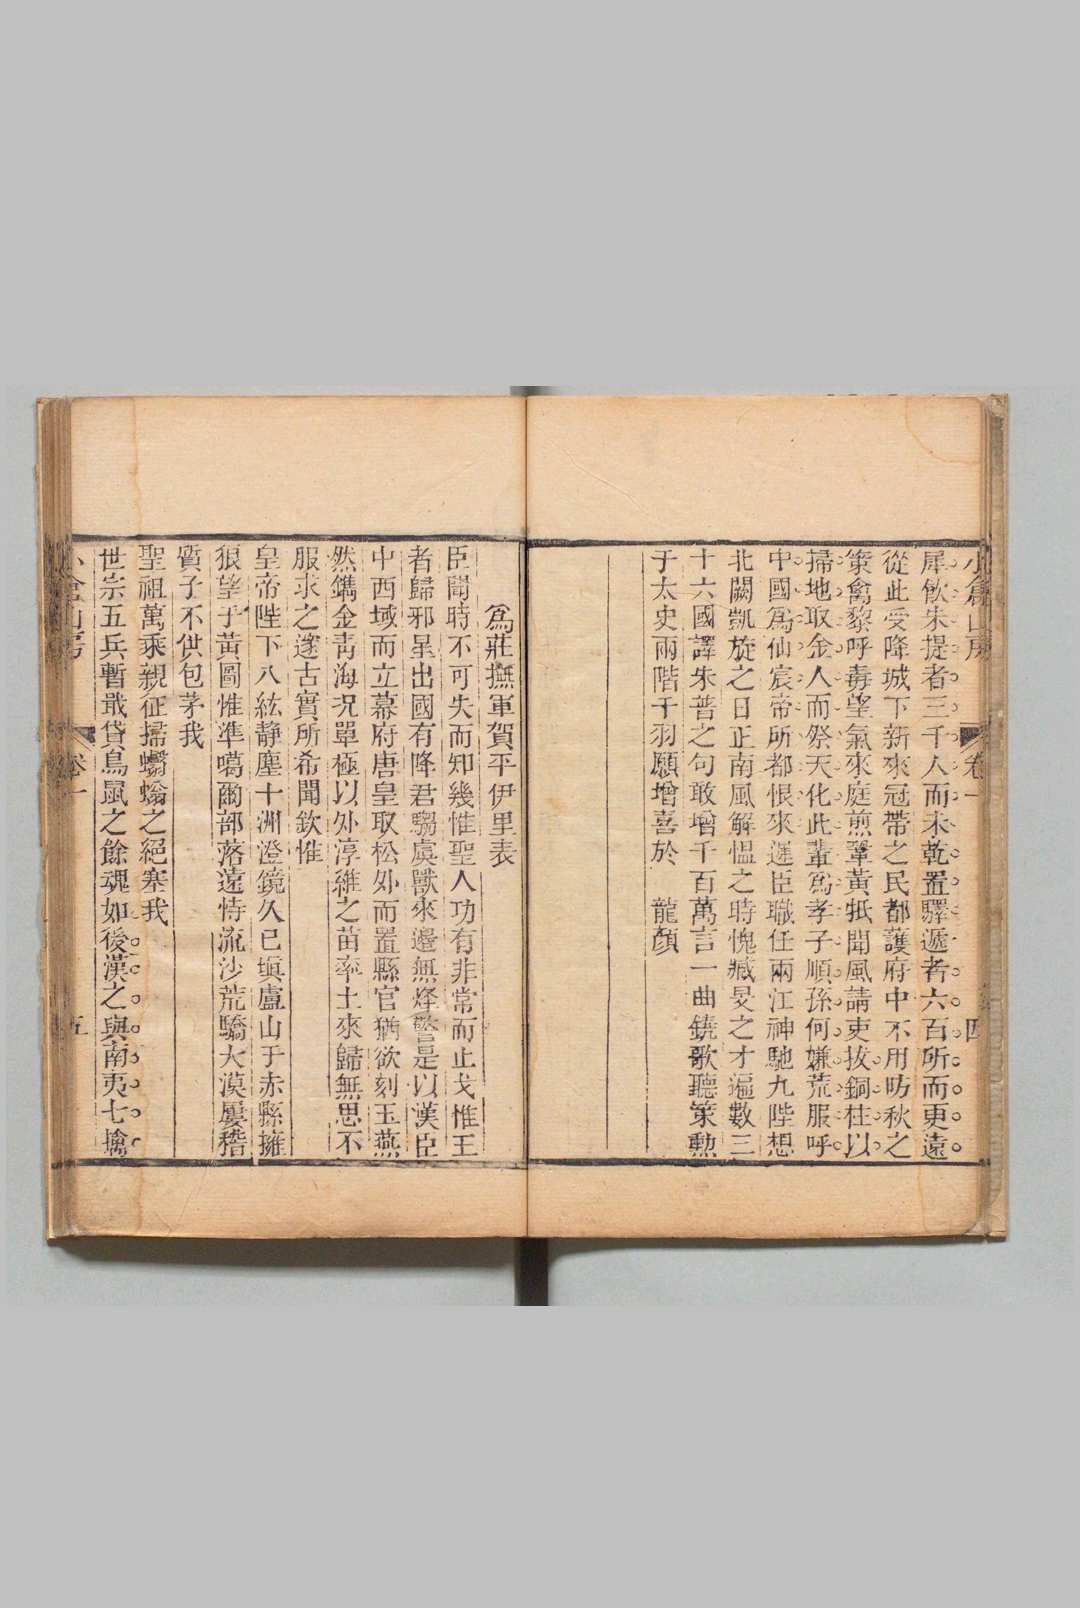 小倉山房 卷一 四
犀飲朱提者三千人而未乾置驛遞者六百所而更遠
從此受降城下新來冠帶之民都護府中不用防秋之
策禽黎呼毒望氣來庭煎鞏黃羝聞風請吏拔銅柱以
掃地取金人而祭天化此輩為孝子順孫何嫌荒服呼
中國為仙宸帝所都恨來遲臣職任兩江神馳九陛想
北闕凱旋之日正南風解慍之時愧臧旻之才遍數三
十六國譯朱普之句敢增千百萬言一曲鐃歌聽策勳
于太史兩階干羽願增喜於 龍顏
為莊撫軍賀平伊里表
臣聞時不可失而知幾惟聖人功有非常而止戈惟王
者歸邪星出國有降君騶虞獸來邊無烽警是以漢臣
中西域而立幕府唐皇取松外而置縣官猶欲刻玉燕
然鐫金青海況單極以外淳維之苗率土來歸無思不
服求之邃古實所希聞欽惟
皇帝陛下八紘靜塵十洲澄鏡久已塡盧山于赤縣擁
狠望于黃圖惟準噶爾部落遠恃流沙荒驕大漠屢稽
質子不供包茅我
聖祖萬乘親征掃蠮螉之絕塞我
世宗五兵暫戢貸鳥鼠之餘魂如後漢之與南夷七擒
小倉山房 卷一 五